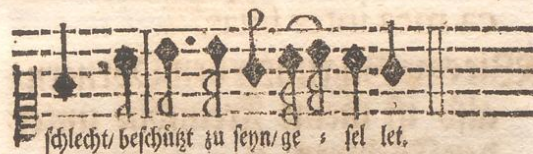 schlecht/ beschützt zu seyn/ ge ⸗ sel let.